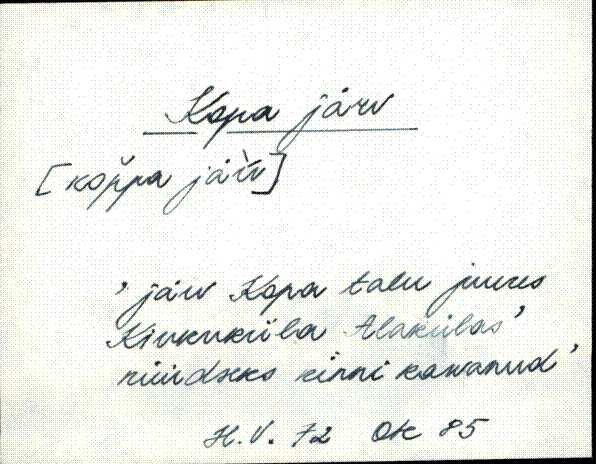 Kopa järv
[kop̆pa jär̀v]
'järv Kopa talu juures
Kirikuküla Alakülas'
nüüdseks kinni kasvanud'
H.V. 72 Otc 85